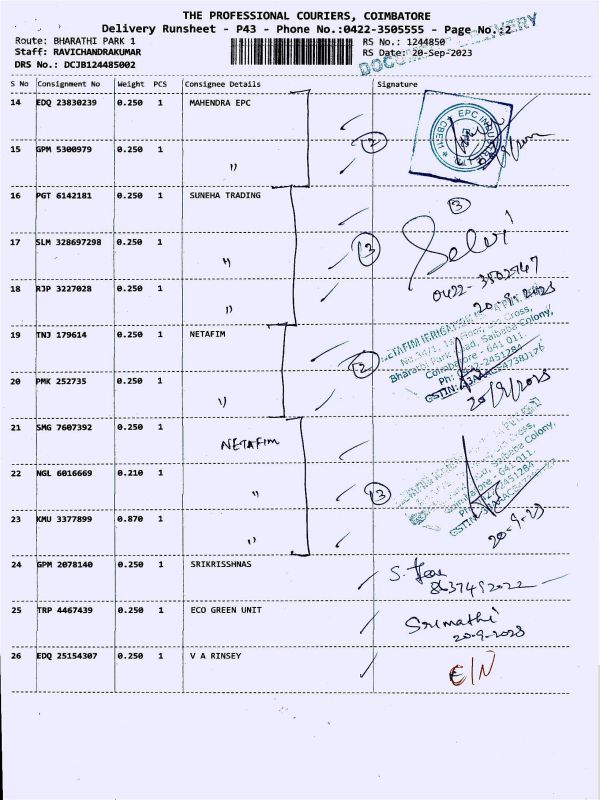 THE PROFESSIONAL COURIERS, COIMBATORE
Delivery Runsheet - P43 - Phone No.:0422-3505555 - Page No.:2
Route: BHARATHI PARK 1
RS No.: 1244850
Staff: RAVICHANDRAKUMAR
RS Date: 20-Sep-2023
DRS No.: DCJB124485002
DELIVERY
S No Consignment No Weight PCS Consignee Details Signature
14 EDQ 23830239 0.250 1 MAHENDRA EPC
EPC
15 GPM 5300979 0.250 1 〃
2
16 PGT 6142181 0.250 1 SUNEHA TRADING
3
17 SLM 328697298 0.250 1 〃
3
Selvi
0422-3502747
18 RJP 3227028 0.250 1 〃
20-9-2023
19 TNJ 179614 0.250 1 NETAFIM
Bharathi Park Road, Saibaba Colony,
Coimbatore - 641 011
2
20 PMK 252735 0.250 1 〃
20/9/2023
21 SMG 7607392 0.250 1 NETAFIM
Saibaba Colony,
22 NGL 6016669 0.210 1 〃
3
23 KMU 3377899 0.870 1 〃
20-9-23
24 GPM 2078140 0.250 1 SRIKRISSHNAS
8637492022
25 TRP 4467439 0.250 1 ECO GREEN UNIT
Srimathi
20-9-2023
26 EDQ 25154307 0.250 1 V A RINSEY